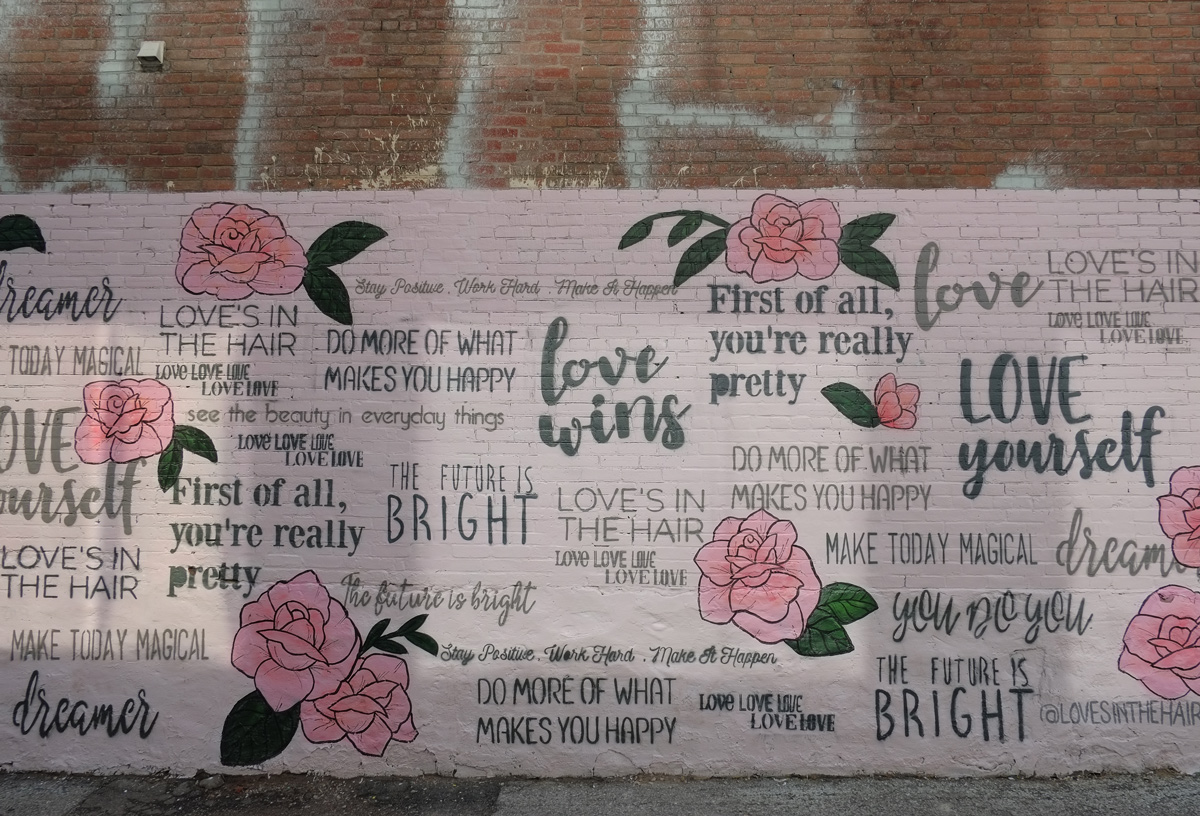 dreamer
LOVE'S IN
THE HAIR
LOVE LOVE LOVE
LOVE LOVE
TODAY MAGICAL
Stay Positive . Work Hard . Make It Happen
DO MORE OF WHAT
MAKES YOU HAPPY
love
wins
First of all,
you're really
pretty
love
LOVE'S IN
THE HAIR
LOVE LOVE LOVE
LOVE LOVE
LOVE
yourself
see the beauty in everyday things
LOVE LOVE LOVE
LOVE LOVE
OVE
ourself
First of all,
you're really
pretty
THE FUTURE IS
BRIGHT
LOVE'S IN
THE HAIR
LOVE LOVE LOVE
LOVE LOVE
DO MORE OF WHAT
MAKES YOU HAPPY
MAKE TODAY MAGICAL
dream
LOVE'S IN
THE HAIR
The future is bright
you DO you
MAKE TODAY MAGICAL
Stay Positive . Work Hard . Make It Happen
dreamer
DO MORE OF WHAT
MAKES YOU HAPPY
LOVE LOVE LOVE
LOVE LOVE
THE FUTURE IS
BRIGHT
@LOVESINTHEHAIR